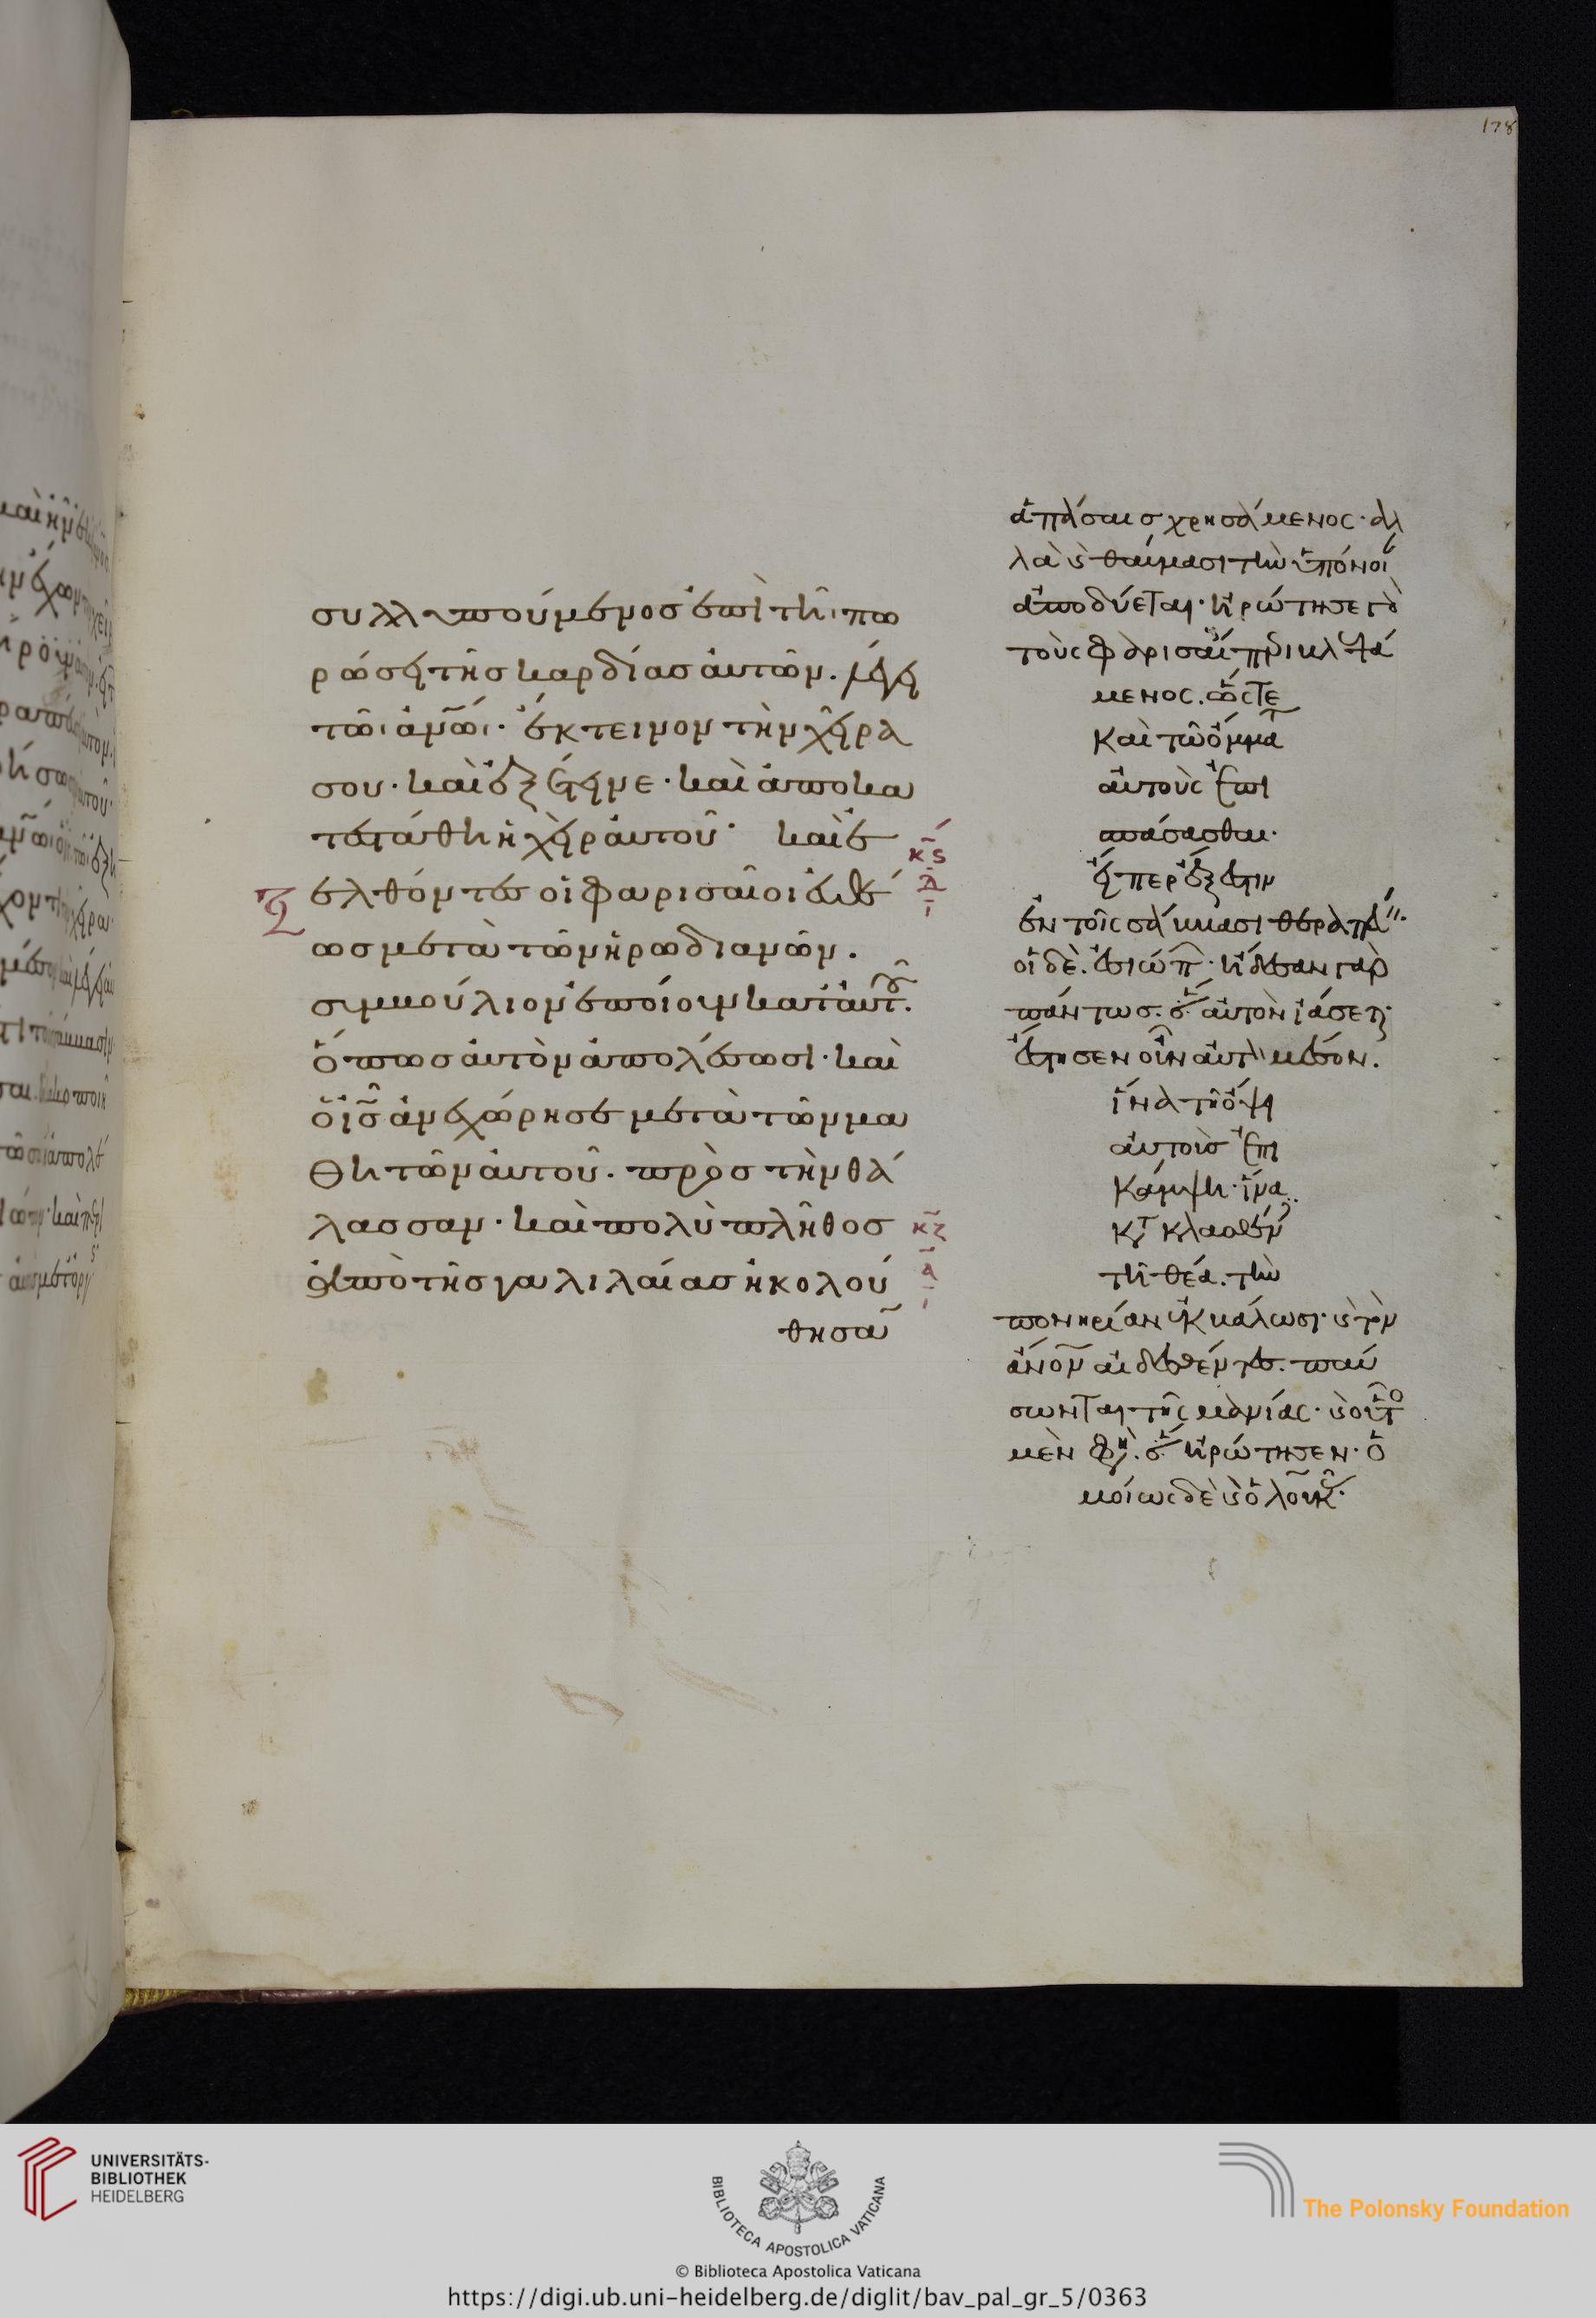 178
συλλυπούμενος ἐπὶ τῆι πω
ρώσει τῆς καρδίας ἀυτῶν. λέγει
τῶι ἀν̅ω̅ι· ἔκτεινον τὴν χεῖρα
σου· καὶ ἐξέτεινε· καὶ ἀποκα
τεστάθη ἡ χεὶρ ἀυτοῦ· καὶ ἐ
ξελθόντες οἱ φαρισαῖοι ἐυθέ
ως μετὰ τῶν ἡρωδιανῶν.
συμβούλιον ἐποίουν κατ' ἀυτοῦ.
ὅπως ἀυτὸν ἀπολέσωσι· καὶ
ὁ ι̅ς̅ ἀνεχώρησε μετὰ τῶν μα
θητῶν ἀυτοῦ. πρὸς τὴν θά
λασσαν· καὶ πολὺ πλῆθος
ἀπὸ τῆς γαλιλαίας ἠκολού
θησαν
κς
δ
ι
κζ
α
ι
ἁπάσαις χρησάμενος· ἀλ
λὰ καὶ θαύμασι τὴν
ἀποδύεται· ἠρώτησε
τοὺς φαρισαί
μενος. ὥστε
καὶ τῶ ὄμματι
ἀυτοὺς ἐπι
σπάσασθαι·
εἴπερ ἔξεστιν
ἐν τοῖς σάββασι θεραπεύειν·
οἱ δὲ. ἐσιώπων· ἤιδεσαν γὰρ
πάντως. ὅτι ἀυτὸν ἰάσεται·
ἔστησεν οὖν ἀυτὸν μέσον.
ἵνα τῆ ὄψει
ἀυτοὺς ἐπι
κάμψη· ἵνα
κατακλασθέντες
τῆ θέα. τὴν
πονηρίαν ἐκβάλωσι· καὶ τὸν
ἄν̅ο̅ν̅ αἰδεσθέντες. παύ
σωνται τῆς μανίας· καὶ οὗτος
μὲν φησὶν. ὅτι ἠρώτησεν· ὁ
μοίως δὲ καὶ ὁ λουκᾶς·
UNIVERSITÄTS-
BIBLIOTHEK
HEIDELBERG
BIBLIOTECA APOSTOLICA VATICANA
The Polonsky Foundation
© Biblioteca Apostolica Vaticana
https://digi.ub.uni-heidelberg.de/diglit/bav_pal_gr_5/0363